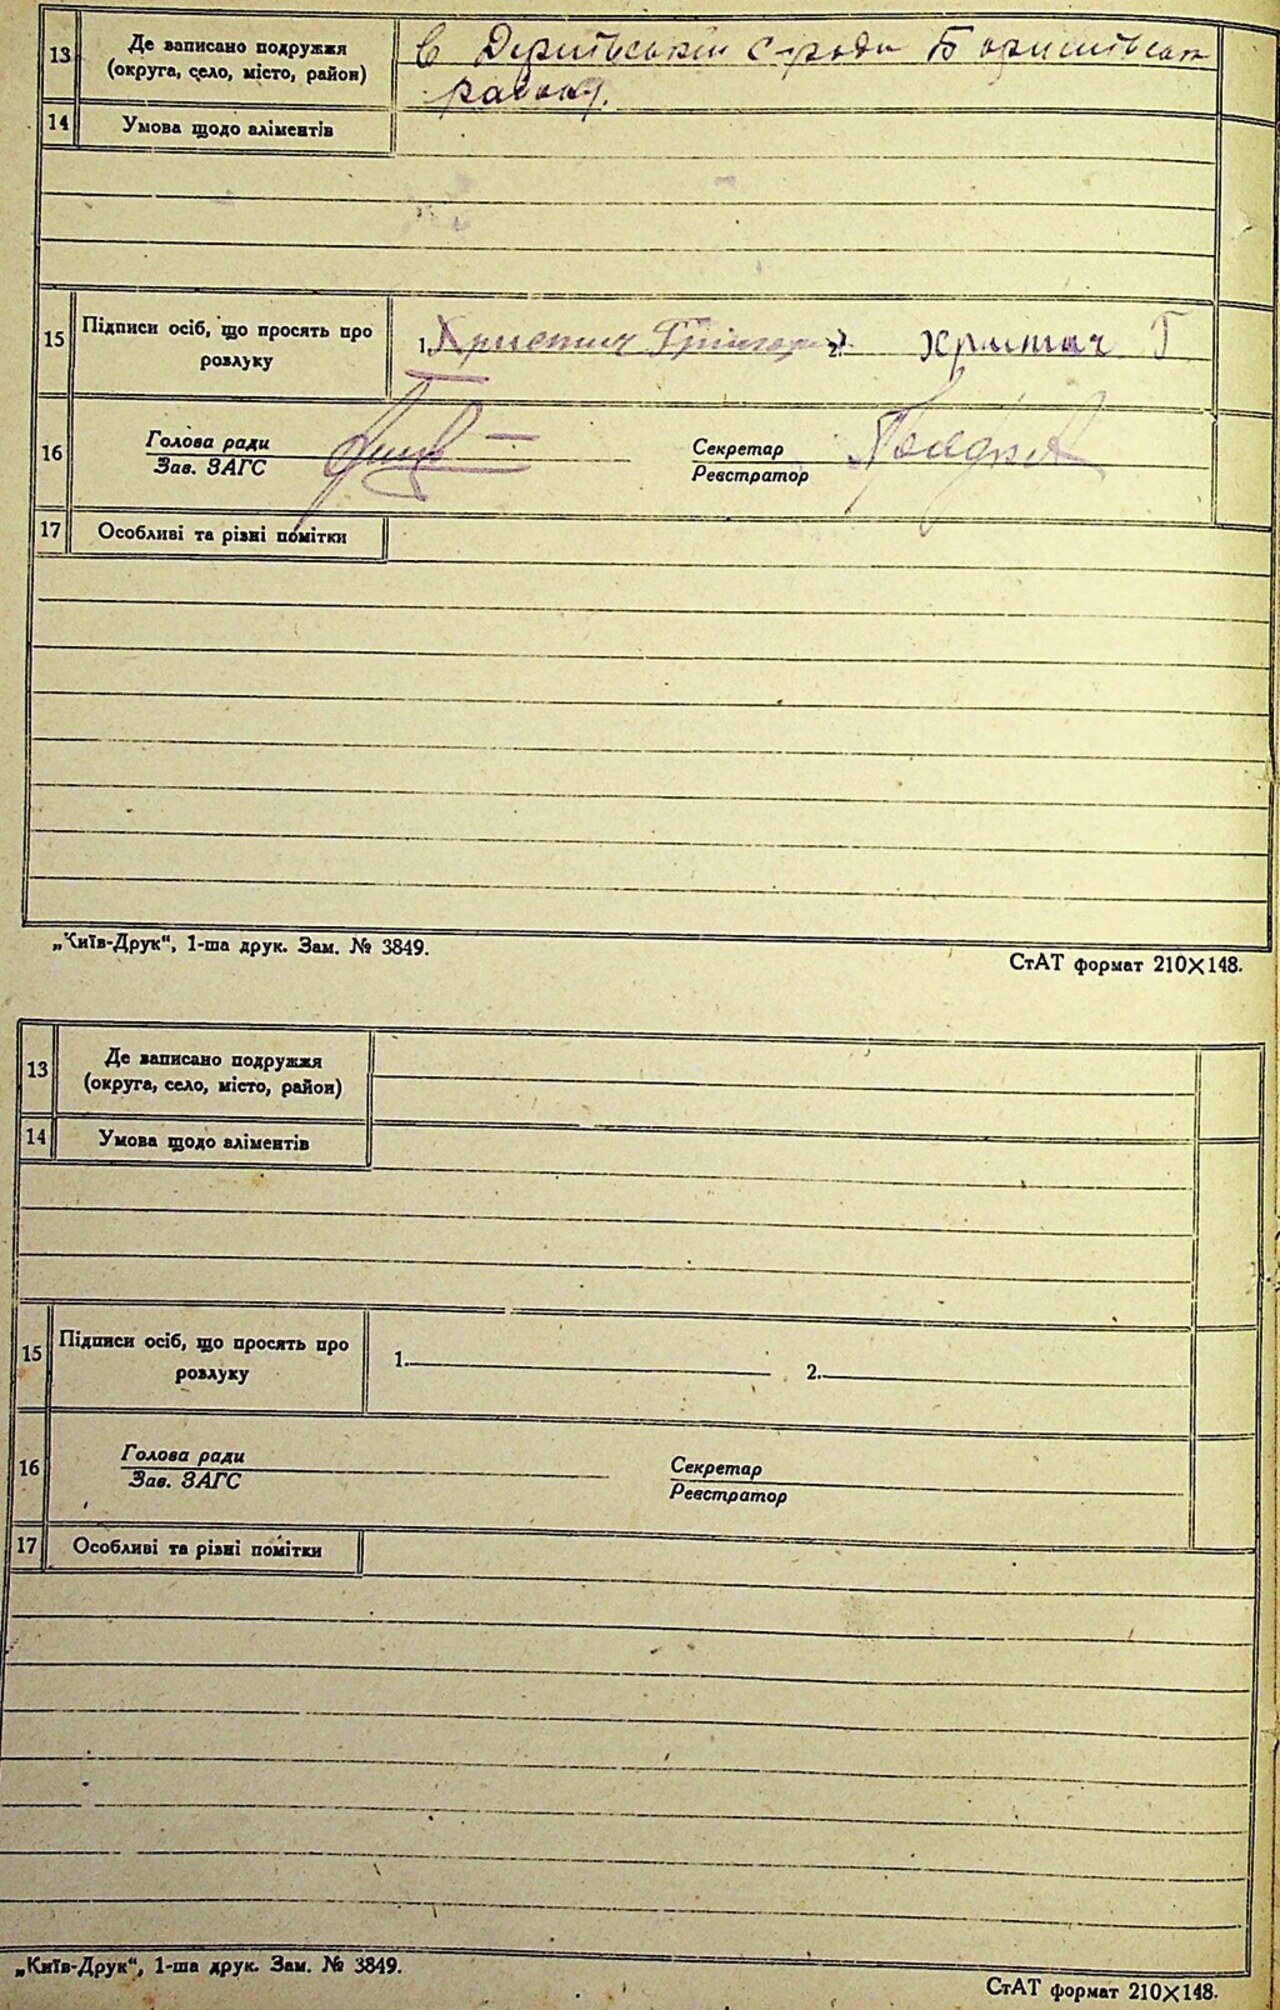 13 Де записано подружжя
(округа, село, місто, район)
В с ради
району.
14 Умова щодо аліментів
15 Підписи осіб, що просять про
розлуку
1. Христич Григорі 2. Христич Г
16 Голова ради
Зав. ЗАГС
Секретар
Реєстратор
17 Особливі та різні помітки
„Київ-Друк“, 1-ша друк. Зам. № 3849.
СтАТ формат 210×148.
13 Де записано подружжя
(округа, село, місто, район)
14 Умова щодо аліментів
15 Підписи осіб, що просять про
розлуку
1. 2.
16 Голова ради
Зав. ЗАГС
Секретар
Реєстратор
17 Особливі та різні помітки
„Київ-Друк“, 1-ша друк. Зам. № 3849.
СтАТ формат 210×148.